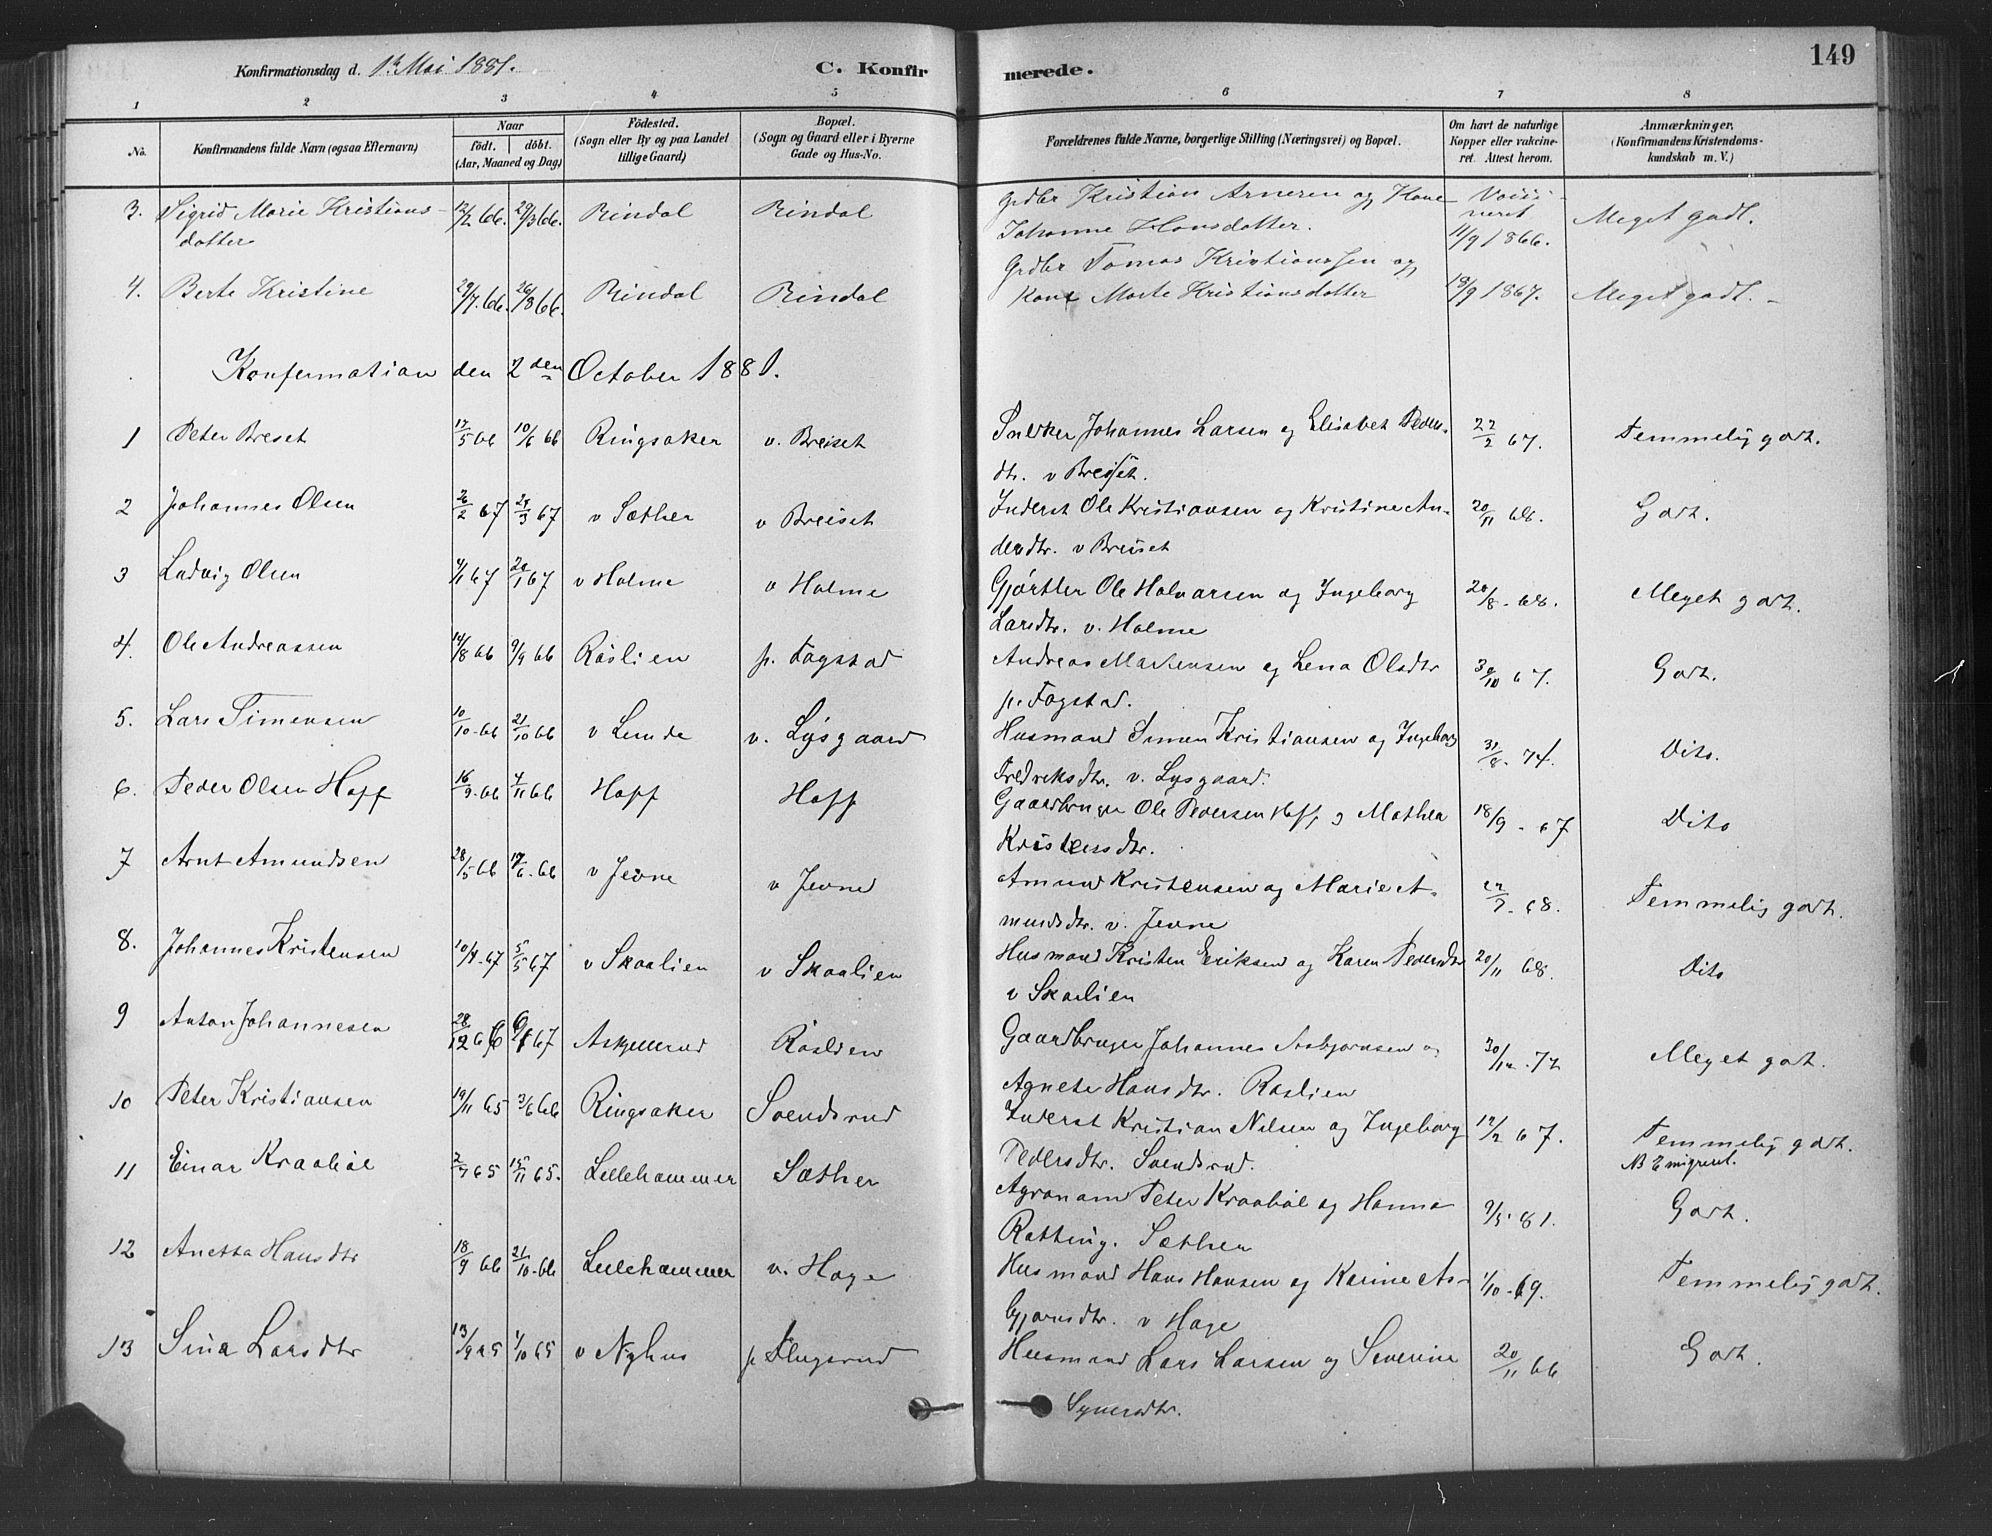 Konfirmationsdag d. 1ste Mai 1881. C. Konfirmerede. 149
1 2 3 4 5 6 7 8
No. Konfirmandens fulde Navn (ogsaa Efternavn) Naar født. døbt. (Aar, Maaned og Dag) Födested. (Sogn eller By og paa Landet tillige Gaard) Bopæl. (Sogn og Gaard eller i Byerne Gade og Hus-No. Forældrenes fulde Navne, borgerlige Stilling (Næringsvei) og Bopæl. Om havt de naturlige Kopper eller vakcineret. Attest herom. Anmærkninger. (Konfirmandens Kristendomskundskab m. V.)
3. Sigrid Marie Kristians- 12/2 66. 29/3 66. Rindal Rindal Grdbr Kristian Arnesen og Kone neret Meget godt.
dotter Johanne Hansdatter. 11/9 1866.
4. Berte Kristine 29/7. 66. 26/8 66. Rindal Rindal Grdbr Tomas Kristianssen og
Kone Marte Kristiansdatter 13/9 1867. Meget godt. -
Konfermation den 2den October 1881.
1 Peter Breset 17/5 66 10/6 66 Ringsaker v. Breiset Johannes Larsen og Elisabet Peders- 22/2 67. Temmelig godt.
dtr. v Breiset.
2 Johannes Olsen 26/2 67 24/3 67 v Sæther v Breiset Inderst Ole Kristiansen og Kristine An- 20/11 68. Godt.
dersdtr. v Breiset
3 Ludvig Olsen 4/1 67 20/1 67 v Holme v Holme Gjørtler Ole Halvarsen og Ingeborg 20/8 - 68. Meget godt.
Larsdtr. v. Holme
4. Ole Andreassen 14/8 66 9/9 66 Råslien p. Fagstad Andreas Martensen og Lena Olsdtr 30/10 67. Godt.
p. Fagstad.
5. Lars Simensen 10/10 - 66 21/10 66 v Lunde v. Lysgaard Husmand Simen Kristiansen og Ingeborg 31/8 - 74. Dito.
Fredriksdtr. v. Lysgaard.
6. Peder Olsen Hoff 16/9 - 66 4/11 66 Hoff Hoff Gaardbruger Ole Pedersen Hoff og Mathea 18/9 - 67 Dito
Kristensdtr.
7 Arnt Amundsen 28/5 66 17/6 - 66 v Jevne v Jevne Amund Kristensen og Marie A- - 68. Temmelig godt.
mundsdtr. v. Jevne
8. Johannes Kristensen 10/4 - 67 5/5 67 v Skaalien v Skaalien Husmand Kristen Eriksen og Karen Pedersdtr 20/11 68. Dito
v Skaalien
9 Anton Johannesen 28/12 66 6/1 67 Askjellrud Råslien Gaardbruger Johannes Asbjørnsen og 30/12 - 72 Meget godt.
Agnete Hansdtr. Råslien
10 Peter Kristiansen 19/11 65 3/6 66 Ringsaker Svendsrud Inderst Kristian Nilsen og Ingeborg 12/2 67. Temmelig godt.
Pedersdtr. Svendsrud. NB Emigreret.
11 Einar Kraabøl 2/7 65 15/11 65. Lillehammer Sæther Agronom Peter Kraabøl og Hanna 9/5 81. Godt.
Rotting. Sæther
12 Anetta Hansdtr 18/9 66 21/10 - 66 Lillehammer v. Hage Husmand Hans Hansen og Karine As- 1/10 - 69. Temmelig godt.
bjørnsdtr. v Hage
13 Sina Larsdtr 13/9 65 1/10 65 v Nyhus p Flugsrud Husmand Lars Larsen og Severine 20/11 66 Godt.
Synersdtr.